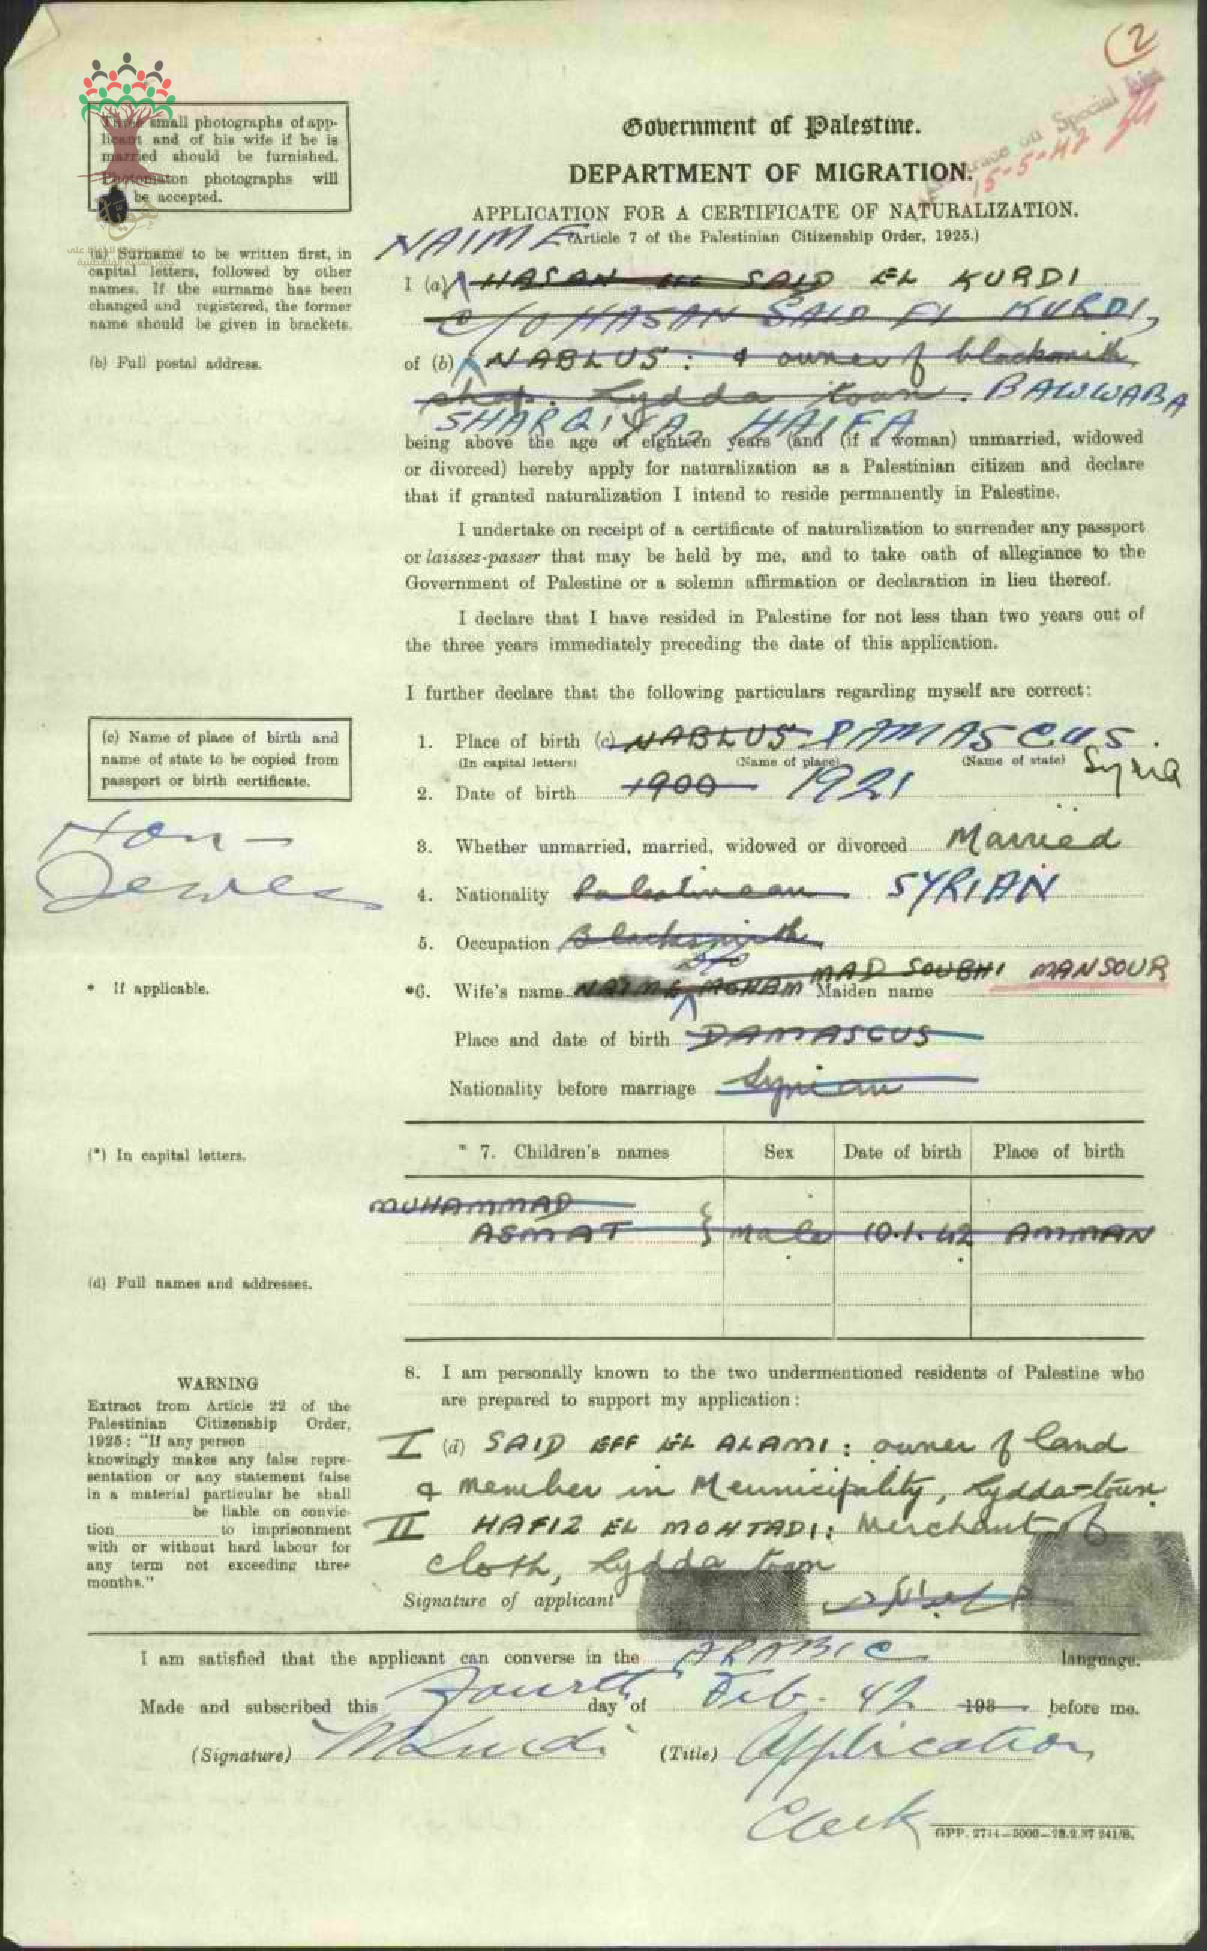 (2
Three small photographs of app-
licant and of his wife if he is
married should be furnished.
Photomaton photographs will
be accepted.
on Special List
15-5-47
Government of Palestine.
DEPARTMENT OF MIGRATION.
APPLICATION FOR A CERTIFICATE OF NATURALIZATION.
(Article 7 of the Palestinian Citizenship Order, 1925.)
NAIME
(a) Surname to be written first, in
capital letters, followed by other
names. If the surname has been
changed and registered, the former
name should be given in brackets.
I (a) HASAN SAID EL KURDI
C/O HASAN SAID EL KURDI,
(b) Full postal address.
of (b) NABLUS: & owner of blacksmith
shop. Lydda town. BAWWABA
SHARQIYA, HAIFA
being above the age of eighteen years (and (if a woman) unmarried, widowed
or divorced) hereby apply for naturalization as a Palestinian citizen and declare
that if granted naturalization I intend to reside permanently in Palestine.
I undertake on receipt of a certificate of naturalization to surrender any passport
or laissez-passer that may be held by me, and to take oath of allegiance to the
Government of Palestine or a solemn affirmation or declaration in lieu thereof.
I declare that I have resided in Palestine for not less than two years out of
the three years immediately preceding the date of this application.
I further declare that the following particulars regarding myself are correct:
(c) Name of place of birth and
name of state to be copied from
passport or birth certificate.
1. Place of birth (c) NABLUS DAMASCUS.
(In capital letters) (Name of place) (Name of state) Syria
2. Date of birth 1900 1921
Non-
Jewes
3. Whether unmarried, married, widowed or divorced Married
4. Nationality Palestinean SYRIAN
5. Occupation Blacksmith
* If applicable.
*6. Wife's name NAIME MOHAM MAD SOUBHI MANSOUR
Maiden name
Place and date of birth DAMASCUS
Nationality before marriage Syrian
(*) In capital letters.
* 7. Children's names Sex Date of birth Place of birth
MUHAMMAD
ASMAT } Male 10.1.42 AMMAN
(d) Full names and addresses.
8. I am personally known to the two undermentioned residents of Palestine who
are prepared to support my application:
WARNING
Extract from Article 22 of the
Palestinian Citizenship Order,
1925: "If any person
knowingly makes any false repre-
sentation or any statement false
in a material particular he shall
be liable on convic-
tion to imprisonment
with or without hard labour for
any term not exceeding three
months."
I (d) SAID EFF EL ALAMI: owner of land
& member in Meunicipality, Lydda-town
II HAFIZ EL MOHTADI: Merchant of
cloth, Lydda town
Signature of applicant
I am satisfied that the applicant can converse in the ARABIC language.
Made and subscribed this Fourth day of Feb. 42 193 before me.
(Signature) (Title) Application
Clerk
GPP. 2744-5000-28.2.37 241/B.